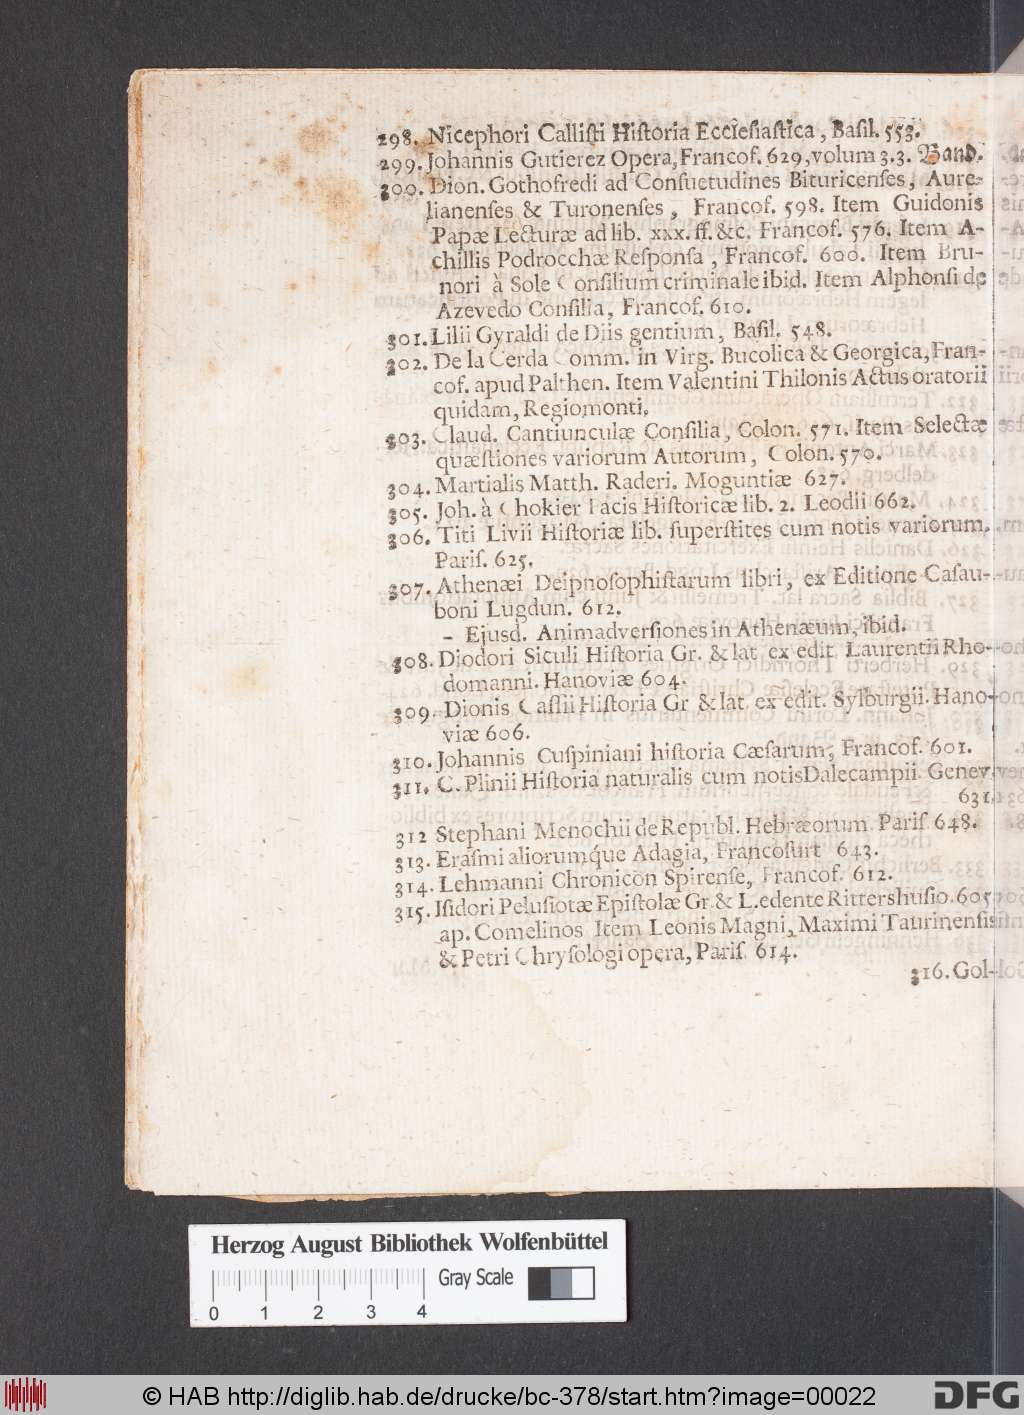 298. Nicephori Calliſti Hiſtoria Eccleſiaſtica, Baſil. 553.
299. Johannis Gutierez Opera, Francof. 629, volum 3. 3. Band.
300. Dion. Gothofredi ad Conſuetudines Bituricenſes, Aure-
lianenſes & Turonenſes, Francof. 598. Item Guidonis
Papæ Lecturæ ad lib. xxx. ff. &c. Francof. 576. Item A-
chillis Podrocchæ Reſponſa, Francof. 600. Item Bru-
nori à Sole Conſilium criminale ibid. Item Alphonſi de
Azevedo Conſilia, Francof. 610.
301. Lilii Gyraldi de Diis gentium, Baſil. 548.
302. De la Cerda Comm. in Virg. Bucolica & Georgica, Fran-
cof. apud Palthen. Item Valentini Thilonis Actus oratorii
quidam, Regiomonti.
303. Claud. Cantiunculæ Conſilia, Colon. 571. Item Selectæ
quæſtiones variorum Autorum, Colon. 570.
304. Martialis Matth. Raderi. Moguntiæ 627.
305. Joh. à Chokier Facis Hiſtoricæ lib. 2. Leodii 662.
306. Titi Livii Hiſtoriæ lib. ſuperſtites cum notis variorum.
Pariſ. 625.
307. Athenæi Deipnoſophiſtarum libri, ex Editione Caſau-
boni Lugdun. 612.
- Ejusd. Animadverſiones in Athenæum, ibid.
308. Diodori Siculi Hiſtoria Gr. & lat. ex edit. Laurentii Rho-
domanni. Hanoviæ 604.
309. Dionis Caſſii Hiſtoria Gr & lat. ex edit. Sylburgii. Hano-
viæ 606.
310. Johannis Cuſpiniani hiſtoria Cæſarum, Francof. 601.
311. C. Plinii Hiſtoria naturalis cum notis Dalecampii. Genev.
631.
312 Stephani Menochii de Republ. Hebræorum. Pariſ. 648.
313. Eraſmi aliorumq́ue Adagia, Francofurt 643.
314. Lehmanni Chronicon Spirenſe, Francof. 612.
315. Iſidori Peluſiotæ Epiſtolæ Gr. & L. edente Rittershuſio. 605
ap. Comelinos Item Leonis Magni, Maximi Taurinenſis
& Petri Chryſologi opera, Pariſ. 614.
316. Gol-
Herzog August Bibliothek Wolfenbüttel
Gray Scale
0 1 2 3 4
© HAB http://diglib.hab.de/drucke/bc-378/start.htm?image=00022
DFG